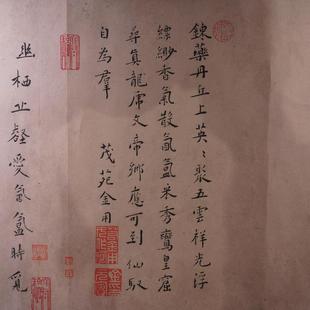 鍊藥丹丘上英〻聚五雲祥光浮
縹緲香氣散氤氳采秀鸞皇窟
尋真龍虎文帝鄉應可到仙馭
自為羣 茂苑金用
幽栖丘壑愛氤氳時覓